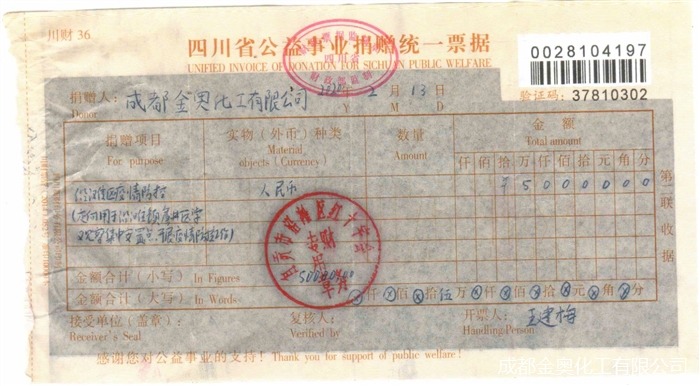 川财 36
四川省公益事业捐赠统一票据
UNIFIED INVOICE OF DONATION FOR SICHUAN PUBLIC WELFARE
四川省
财政部监制
0028104197
验证码: 37810302
捐赠人: 成都金奥化工有限公司 2020年 2月 13日
Donor Y M D
捐赠项目 实物（外币）种类 数量 金额
For purpose Material objects (Currency) Amount Total amount
仟 佰 拾 万 仟 佰 拾 元 角 分
沿滩区疫情防控 人民币 ¥ 5 0 0 0 0 0 0
财务专用章
第二联 收据
金额合计（小写） In Figures 50000.00
金额合计（大写） In Words 仟 佰 拾 伍 万 仟 佰 拾 元 角 分
接受单位（盖章）: 复核人: 开票人: 王建梅
Receiver's Seal Verified by Handling Person
感谢您对公益事业的支持！Thank you for support of public welfare!
成都金奥化工有限公司